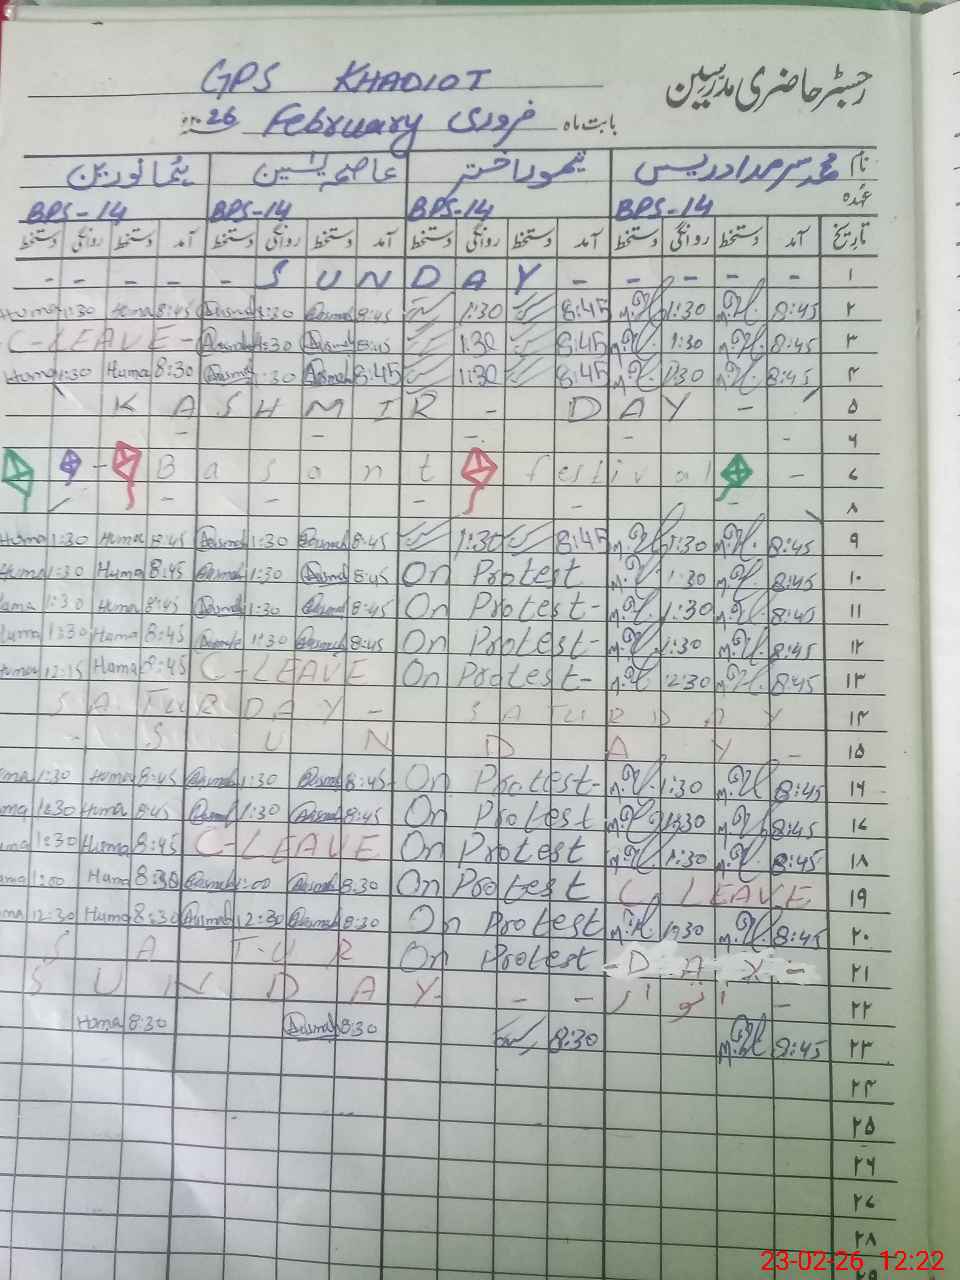 GPS KHADIOT
رجسٹر حاضری مدرسین
بابت ماہ فروری February 26
نام محمد سرمد ادریس تیمور اختر عاصمہ یٰسین ہما نورین
عہدہ BPS-14 BPS-14 BPS-14 BPS-14
تاریخ آمد دستخط روانگی دستخط آمد دستخط روانگی دستخط آمد دستخط روانگی دستخط آمد دستخط روانگی دستخط
۱ - - - - - S U N D A Y - - - - -
Huma 1:30 Huma 8:45 Asma 1:30 Asma 8:45 1:30 8:45 1:30 8:45 ۲
C-LEAVE - Asma 1:30 Asma 8:45 1:30 8:45 1:30 8:45 ۳
Huma 1:30 Huma 8:30 Asma 1:30 Asma 8:45 1:30 8:45 1:30 8:45 ۴
K A S H M I R - D A Y - ۵
- - - - - ۶
- Basant festival - ۷
- - - - - ۸
Huma 1:30 Huma 8:45 Asma 1:30 Asma 8:45 1:30 8:45 1:30 8:45 ۹
Huma 1:30 Huma 8:45 Asma 1:30 Asma 8:45 On Protest 1:30 8:45 ۱۰
Huma 1:30 Huma 8:45 Asma 1:30 Asma 8:45 On Protest- 1:30 8:45 ۱۱
Huma 1:30 Huma 8:45 Asma 1:30 Asma 8:45 On Protest- 1:30 8:45 ۱۲
Huma 12:15 Huma 8:45 C-LEAVE On Protest- 12:30 8:45 ۱۳
S A T U R D A Y - S A T U R D A Y ۱۴
- S U N D A Y - ۱۵
Huma 1:30 Huma 8:45 Asma 1:30 Asma 8:45 On Protest- 1:30 8:45 ۱۶
Huma 1:30 Huma 8:45 Asma 1:30 Asma 8:45 On Protest 1:30 8:45 ۱۷
Huma 1:30 Huma 8:45 C-LEAVE On Protest 1:30 8:45 ۱۸
Huma 1:00 Huma 8:30 Asma 1:00 Asma 8:30 On Protest C-LEAVE 19
Huma 12:30 Huma 8:30 Asma 12:30 Asma 8:30 On Protest 8:45 ۲۰
S A T U R On Protest - D A Y - ۲۱
S U N D A Y - - - اتوار - ۲۲
Huma 8:30 Asma 8:30 8:30 8:45 ۲۳
۲۴
۲۵
۲۶
۲۷
۲۸
23-02-26 12:22